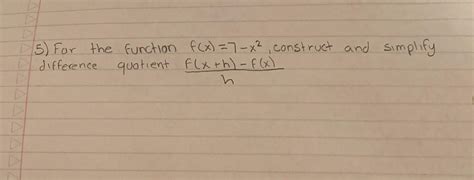 5) For the function f(x)=7-x², construct and simplify
difference quotient f(x+h)-f(x)
h